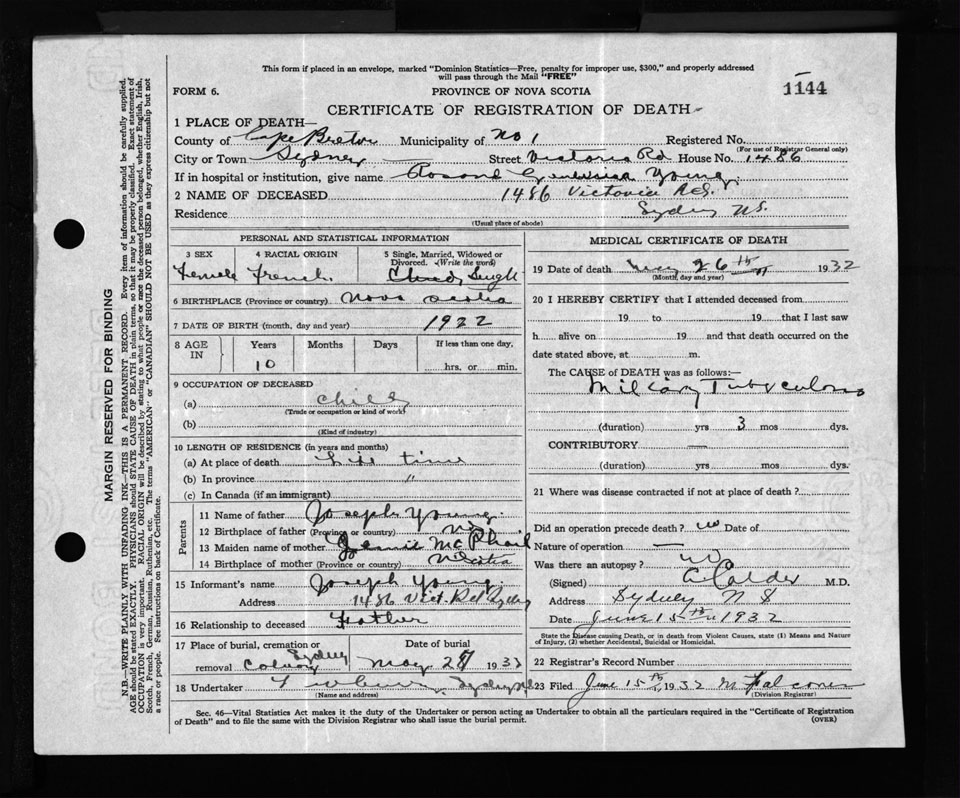 This form if placed in an envelope, marked "Dominion Statistics—Free, penalty for improper use, $300," and properly addressed
will pass through the Mail "FREE"
FORM 6.
PROVINCE OF NOVA SCOTIA
1144
CERTIFICATE OF REGISTRATION OF DEATH
1 PLACE OF DEATH—
County of Cape Breton Municipality of No 1 Registered No.
(For use of Registrar General only)
City or Town Sydney Street Victoria Rd House No. 1486
If in hospital or institution, give name Young
2 NAME OF DECEASED 1486 Victoria Rd.
Residence Sydney N.S.
(Usual place of abode)
PERSONAL AND STATISTICAL INFORMATION
3 SEX 4 RACIAL ORIGIN 5 Single, Married, Widowed or Divorced. (Write the word)
Female French Child Single
6 BIRTHPLACE (Province or country) Nova Scotia
7 DATE OF BIRTH (month, day and year) 1922
8 AGE IN Years Months Days If less than one day,
10 hrs. or min.
9 OCCUPATION OF DECEASED
(a) child
(Trade or occupation or kind of work)
(b)
(Kind of industry)
10 LENGTH OF RESIDENCE (in years and months)
(a) At place of death Life time
(b) In province "
(c) In Canada (if an immigrant)
Parents
11 Name of father Joseph Young
12 Birthplace of father (Province or country) N.S.
13 Maiden name of mother McPhail
14 Birthplace of mother (Province or country) N Scotia
15 Informant's name Joseph Young
Address 1486 Vict. Rd Sydney
16 Relationship to deceased Father
17 Place of burial, cremation or removal Date of burial
Calvary Sydney May 27 1932
18 Undertaker Sydney
MEDICAL CERTIFICATE OF DEATH
19 Date of death May 26th 1932
(Month, day and year)
20 I HEREBY CERTIFY that I attended deceased from
19 to 19 that I last saw
h alive on 19 and that death occurred on
date stated above, at m.
The CAUSE of DEATH was as follows:—
Miliary Tuberculosis
(duration) yrs 3 mos dys.
CONTRIBUTORY —
(duration) yrs mos dys.
21 Where was disease contracted if not at place of death?
Did an operation precede death? no Date of
Nature of operation —
Was there an autopsy? no
(Signed) Calder M.D.
Address Sydney N S
Date June 15th 1932
State the Disease causing Death, or in death from Violent Causes, state (1) Means and Nature
of Injury, (2) whether Accidental, Suicidal or Homicidal.
22 Registrar's Record Number
23 Filed June 15th 1932 M Falconer
(Division Registrar)
Sec. 46—Vital Statistics Act makes it the duty of the Undertaker or person acting as Undertaker to obtain all the particulars required in the "Certificate of Registration
of Death" and to file the same with the Division Registrar who shall issue the burial permit.
(OVER)
MARGIN RESERVED FOR BINDING
N.B.—WRITE PLAINLY WITH UNFADING INK—THIS IS A PERMANENT RECORD. Every item of information should be carefully supplied.
AGE should be stated EXACTLY. PHYSICIANS should STATE CAUSE OF DEATH in plain terms, so that it may be properly classified. Exact statement of
OCCUPATION is very important. RACIAL ORIGIN will be described by stating to what people or race the deceased person belonged, whether English, Irish,
Scotch, French, German, Russian, Ruthenian, etc. The terms "AMERICAN" or "CANADIAN" SHOULD NOT BE USED as they express citizenship but not
a race or people. See instructions on back of Certificate.